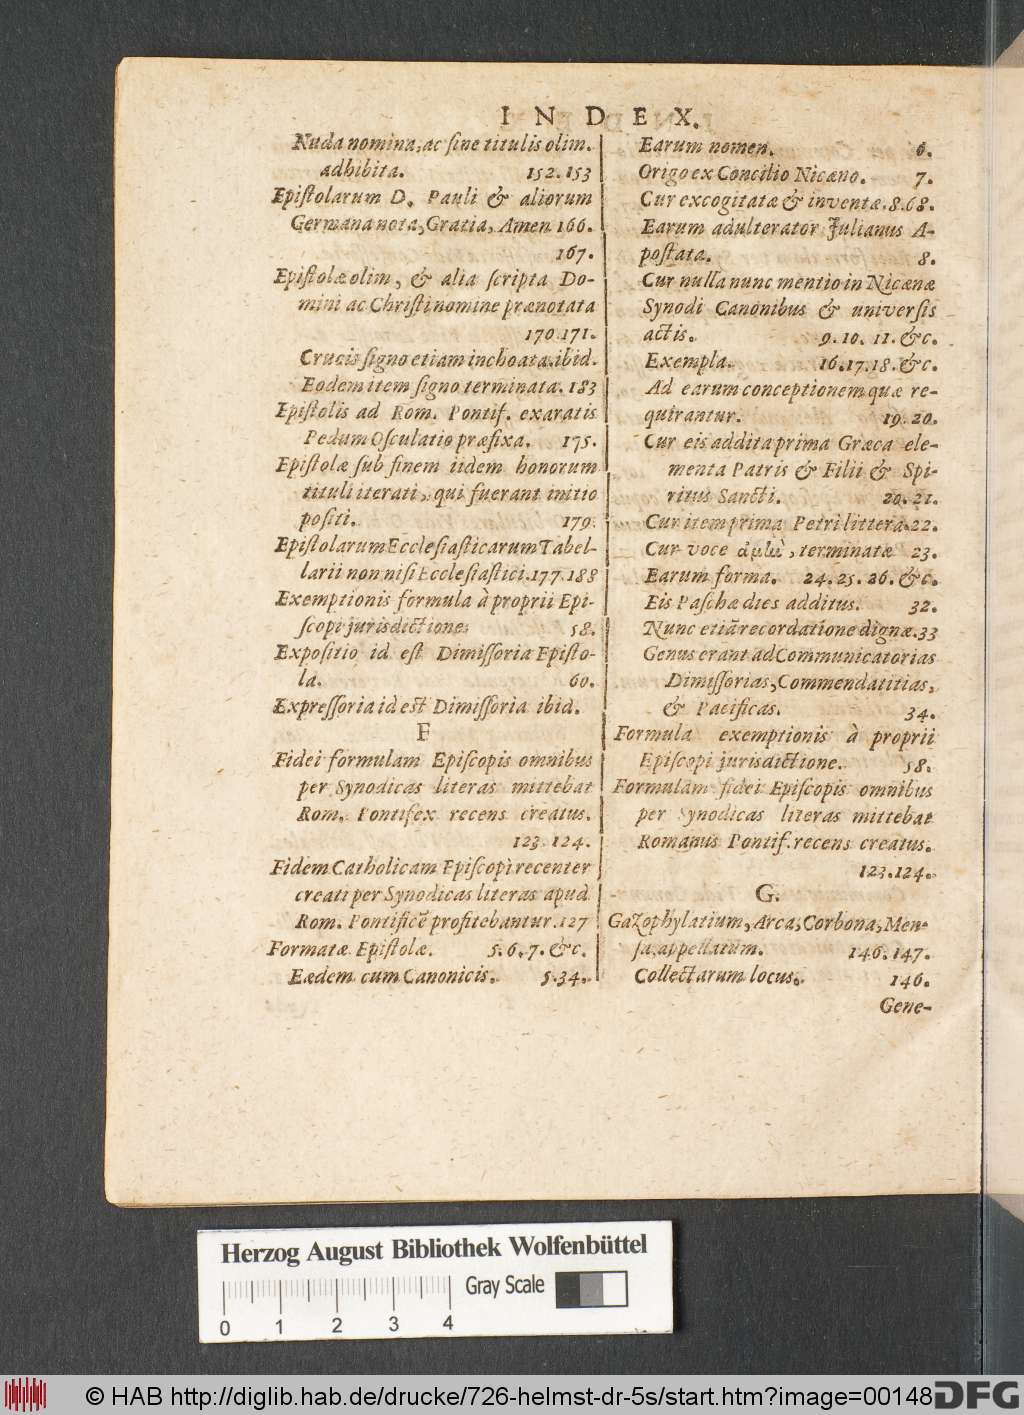 INDEX.
Nuda nomina, ac ſine titulis olim.
adhibita. 152.153
Epiſtolarum D. Pauli & aliorum
Germana nota, Gratia, Amen 166.
167.
Epiſtolæ olim, & alia ſcripta Do-
mini ac Chriſti nomine prænotata
170.171.
Crucis ſigno etiam inchoata.ibid.
Eodem item ſigno terminata. 183
Epiſtolis ad Rom. Pontif. exaratis
Pedum Oſculatio præfixa. 175.
Epiſtolæ ſub finem iidem honorum
tituli iterati, qui fuerant initio
poſiti. 179.
Epiſtolarum Eccleſiaſticarum Tabel-
larii non niſi Eccleſiaſtici.177.188
Exemptionis formula à proprii Epi-
ſcopi jurisdictione. 58.
Expoſitio id eſt Dimiſſoria Epiſto-
la. 60.
Expreſſoria id eſt Dimiſſoria ibid.
F
Fidei formulam Epiſcopis omnibus
per Synodicas literas mittebat
Rom. Pontifex recens creatus.
123.124.
Fidem Catholicam Epiſcopi recenter
creati per Synodicas literas apud
Rom. Pontificē profitebantur.127
Formatæ Epiſtolæ. 5.6.7.&c.
Eædem cum Canonicis. 5.34.
Earum nomen. 6.
Origo ex Concilio Nicæno. 7.
Cur excogitatæ & inventæ.8.68.
Earum adulterator Julianus A-
poſtata. 8.
Cur nulla nunc mentio in Nicænæ
Synodi Canonibus & univerſis
actis. 9.10.11.&c.
Exempla. 16.17.18.&c.
Ad earum conceptionem quæ re-
quirantur. 19.20.
Cur eis addita prima Græca ele-
menta Patris & Filii & Spi-
ritus Sancti. 20.21.
Cur item prima Petri littera.22.
Cur voce ἀμὴν, terminatæ 23.
Earum forma. 24.25.26.&c.
Eis Paſchæ dies additus. 32.
Nunc etiā recordatione dignæ.33
Genus erant ad Communicatorias
Dimiſſorias, Commendatitias,
& Pacificas. 34.
Formula exemptionis à proprii
Epiſcopi jurisdictione. 58.
Formulam fidei Epiſcopis omnibus
per Synodicas literas mittebat
Romanus Pontif. recens creatus.
123.124.
G.
Gazophylatium, Arca, Corbona, Men-
ſa, appellatum. 146.147.
Collectarum locus. 146.
Gene-
Herzog August Bibliothek Wolfenbüttel
Gray Scale
0 1 2 3 4
© HAB http://diglib.hab.de/drucke/726-helmst-dr-5s/start.htm?image=00148
DFG